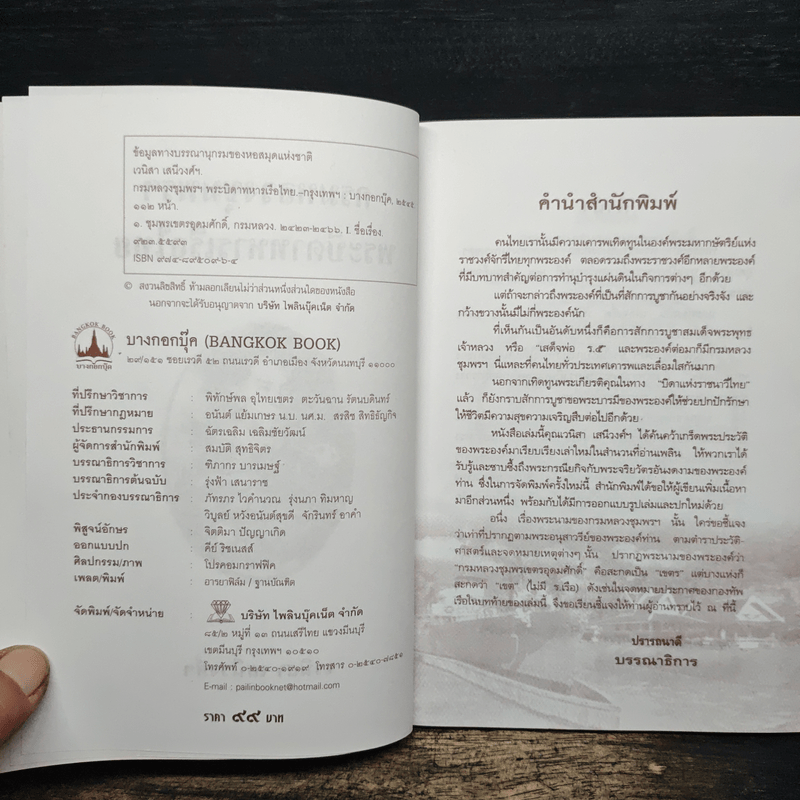 ข้อมูลทางบรรณานุกรมของหอสมุดแห่งชาติ
เวนิสา เสนีวงศ์ฯ.
กรมหลวงชุมพรฯ พระบิดาทหารเรือไทย.–กรุงเทพฯ : บางกอกบุ๊ค, ๒๕๔๕
๑๑๒ หน้า.
๑. ชุมพรเขตรอุดมศักดิ์, กรมหลวง. ๒๔๒๓-๒๔๖๖. I. ชื่อเรื่อง.
๙๒๓.๕๕๙๓
ISBN ๙๗๔-๘๙๕๐๙-๖-๔
© สงวนลิขสิทธิ์ ห้ามลอกเลียนไม่ว่าส่วนหนึ่งส่วนใดของหนังสือ
นอกจากจะได้รับอนุญาตจาก บริษัท ไพลินบุ๊คเน็ต จำกัด
BANGKOK BOOK
บางกอกบุ๊ค
บางกอกบุ๊ค (BANGKOK BOOK)
๒๙/๑๕๑ ซอยเรวดี ๕๒ ถนนเรวดี อำเภอเมือง จังหวัดนนทบุรี ๑๑๐๐๐
ที่ปรึกษาวิชาการ : พิทักษ์พล อุไทยเขตร ตะวันฉาน รัตนบดินทร์
ที่ปรึกษากฎหมาย : อนันต์ แย้มเกษร น.บ. นศ.ม. สรสิช สิทธิธัญกิจ
ประธานกรรมการ : ฉัตรเฉลิม เฉลิมชัยวัฒน์
ผู้จัดการสำนักพิมพ์ : สมบัติ สุทธิจิตร
บรรณาธิการวิชาการ : ฑิภากร บารเมษฐ์
บรรณาธิการต้นฉบับ : รุ่งฟ้า เสนาราช
ประจำกองบรรณาธิการ : ภัทรภร ไวคำนวณ รุ่งนภา ทิมหาญ
วิบูลย์ หวังอนันต์สุขดี จักรินทร์ อาคำ
พิสูจน์อักษร : จิตติมา ปัญญาเกิด
ออกแบบปก : คีย์ ริชเนสส์
ศิลปกรรม/ภาพ : โปรคอมกราฟฟิค
เพลต/พิมพ์ : อารยาฟิล์ม / ฐานบัณฑิต
จัดพิมพ์/จัดจำหน่าย : บริษัท ไพลินบุ๊คเน็ต จำกัด
๘๕/๒ หมู่ที่ ๑๓ ถนนเสรีไทย แขวงมีนบุรี
เขตมีนบุรี กรุงเทพฯ ๑๐๕๑๐
โทรศัพท์ ๐-๒๕๔๐-๑๙๑๙ โทรสาร ๐-๒๕๔๐-๗๘๕๑
E-mail : pailinbooknet@hotmail.com
ราคา ๙๙ บาท
คำนำสำนักพิมพ์
คนไทยเรานั้นมีความเคารพเทิดทูนในองค์พระมหากษัตริย์แห่ง
ราชวงศ์จักรีไทยทุกพระองค์ ตลอดรวมถึงพระราชวงศ์อีกหลายพระองค์
ที่มีบทบาทสำคัญต่อการทำนุบำรุงแผ่นดินในกิจการต่างๆ อีกด้วย
แต่ถ้าจะกล่าวถึงพระองค์ที่เป็นที่สักการบูชากันอย่างจริงจัง และ
กว้างขวางนั้นมีไม่กี่พระองค์นัก
ที่เห็นกันเป็นอันดับหนึ่งก็คือการสักการบูชาสมเด็จพระพุทธ
เจ้าหลวง หรือ "เสด็จพ่อ ร.๕" และพระองค์ต่อมาก็มีกรมหลวง
ชุมพรฯ นี่แหละที่คนไทยทั่วประเทศเคารพและเลื่อมใสกันมาก
นอกจากเทิดทูนพระเกียรติคุณในทาง "บิดาแห่งราชนาวีไทย"
แล้ว ก็ยังกราบสักการบูชาขอพระบารมีของพระองค์ให้ช่วยปกปักรักษา
ให้ชีวิตมีความสุขความเจริญสืบต่อไปอีกด้วย
หนังสือเล่มนี้คุณเวนิสา เสนีวงศ์ฯ ได้ค้นคว้าเกร็ดพระประวัติ
ของพระองค์มาเรียบเรียงเล่าใหม่ในสำนวนที่อ่านเพลิน ให้พวกเราได้
รับรู้และซาบซึ้งถึงพระกรณียกิจกับพระจริยวัตรอันงดงามของพระองค์
ท่าน ซึ่งในการจัดพิมพ์ครั้งใหม่นี้ สำนักพิมพ์ได้ขอให้ผู้เขียนเพิ่มเนื้อหา
มาอีกส่วนหนึ่ง พร้อมกับได้มีการออกแบบรูปเล่มและปกใหม่ด้วย
อนึ่ง เรื่องพระนามของกรมหลวงชุมพรฯ นั้น ใคร่ขอชี้แจง
ว่าเท่าที่ปรากฏตามพระอนุสาวรีย์ของพระองค์ท่าน ตามตำราประวัติ-
ศาสตร์และจดหมายเหตุต่างๆ นั้น ปรากฏพระนามของพระองค์ว่า
"กรมหลวงชุมพรเขตอุดมศักดิ์" คือสะกดเป็น "เขตร" แต่บางแห่งก็
สะกดว่า "เขต" (ไม่มี ร.เรือ) ดังเช่นในจดหมายประกาศของกองทัพ
เรือในบทท้ายของเล่มนี้ จึงขอเรียนชี้แจงให้ท่านผู้อ่านทราบไว้ ณ ที่นี้
ปรารถนาดี
บรรณาธิการ